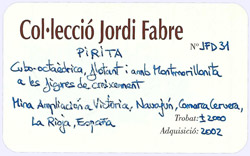 Col·lecció Jordi Fabre
Nº JFD31
PIRITA
Cubo-octaèdrica, flotant i amb Montmorillonita
a les figures de creixement
Mina Ampliación a Victoria, Navajún, Comarca Cervera,
La Rioja, España
Trobat: ±2000
Adquisició: 2002